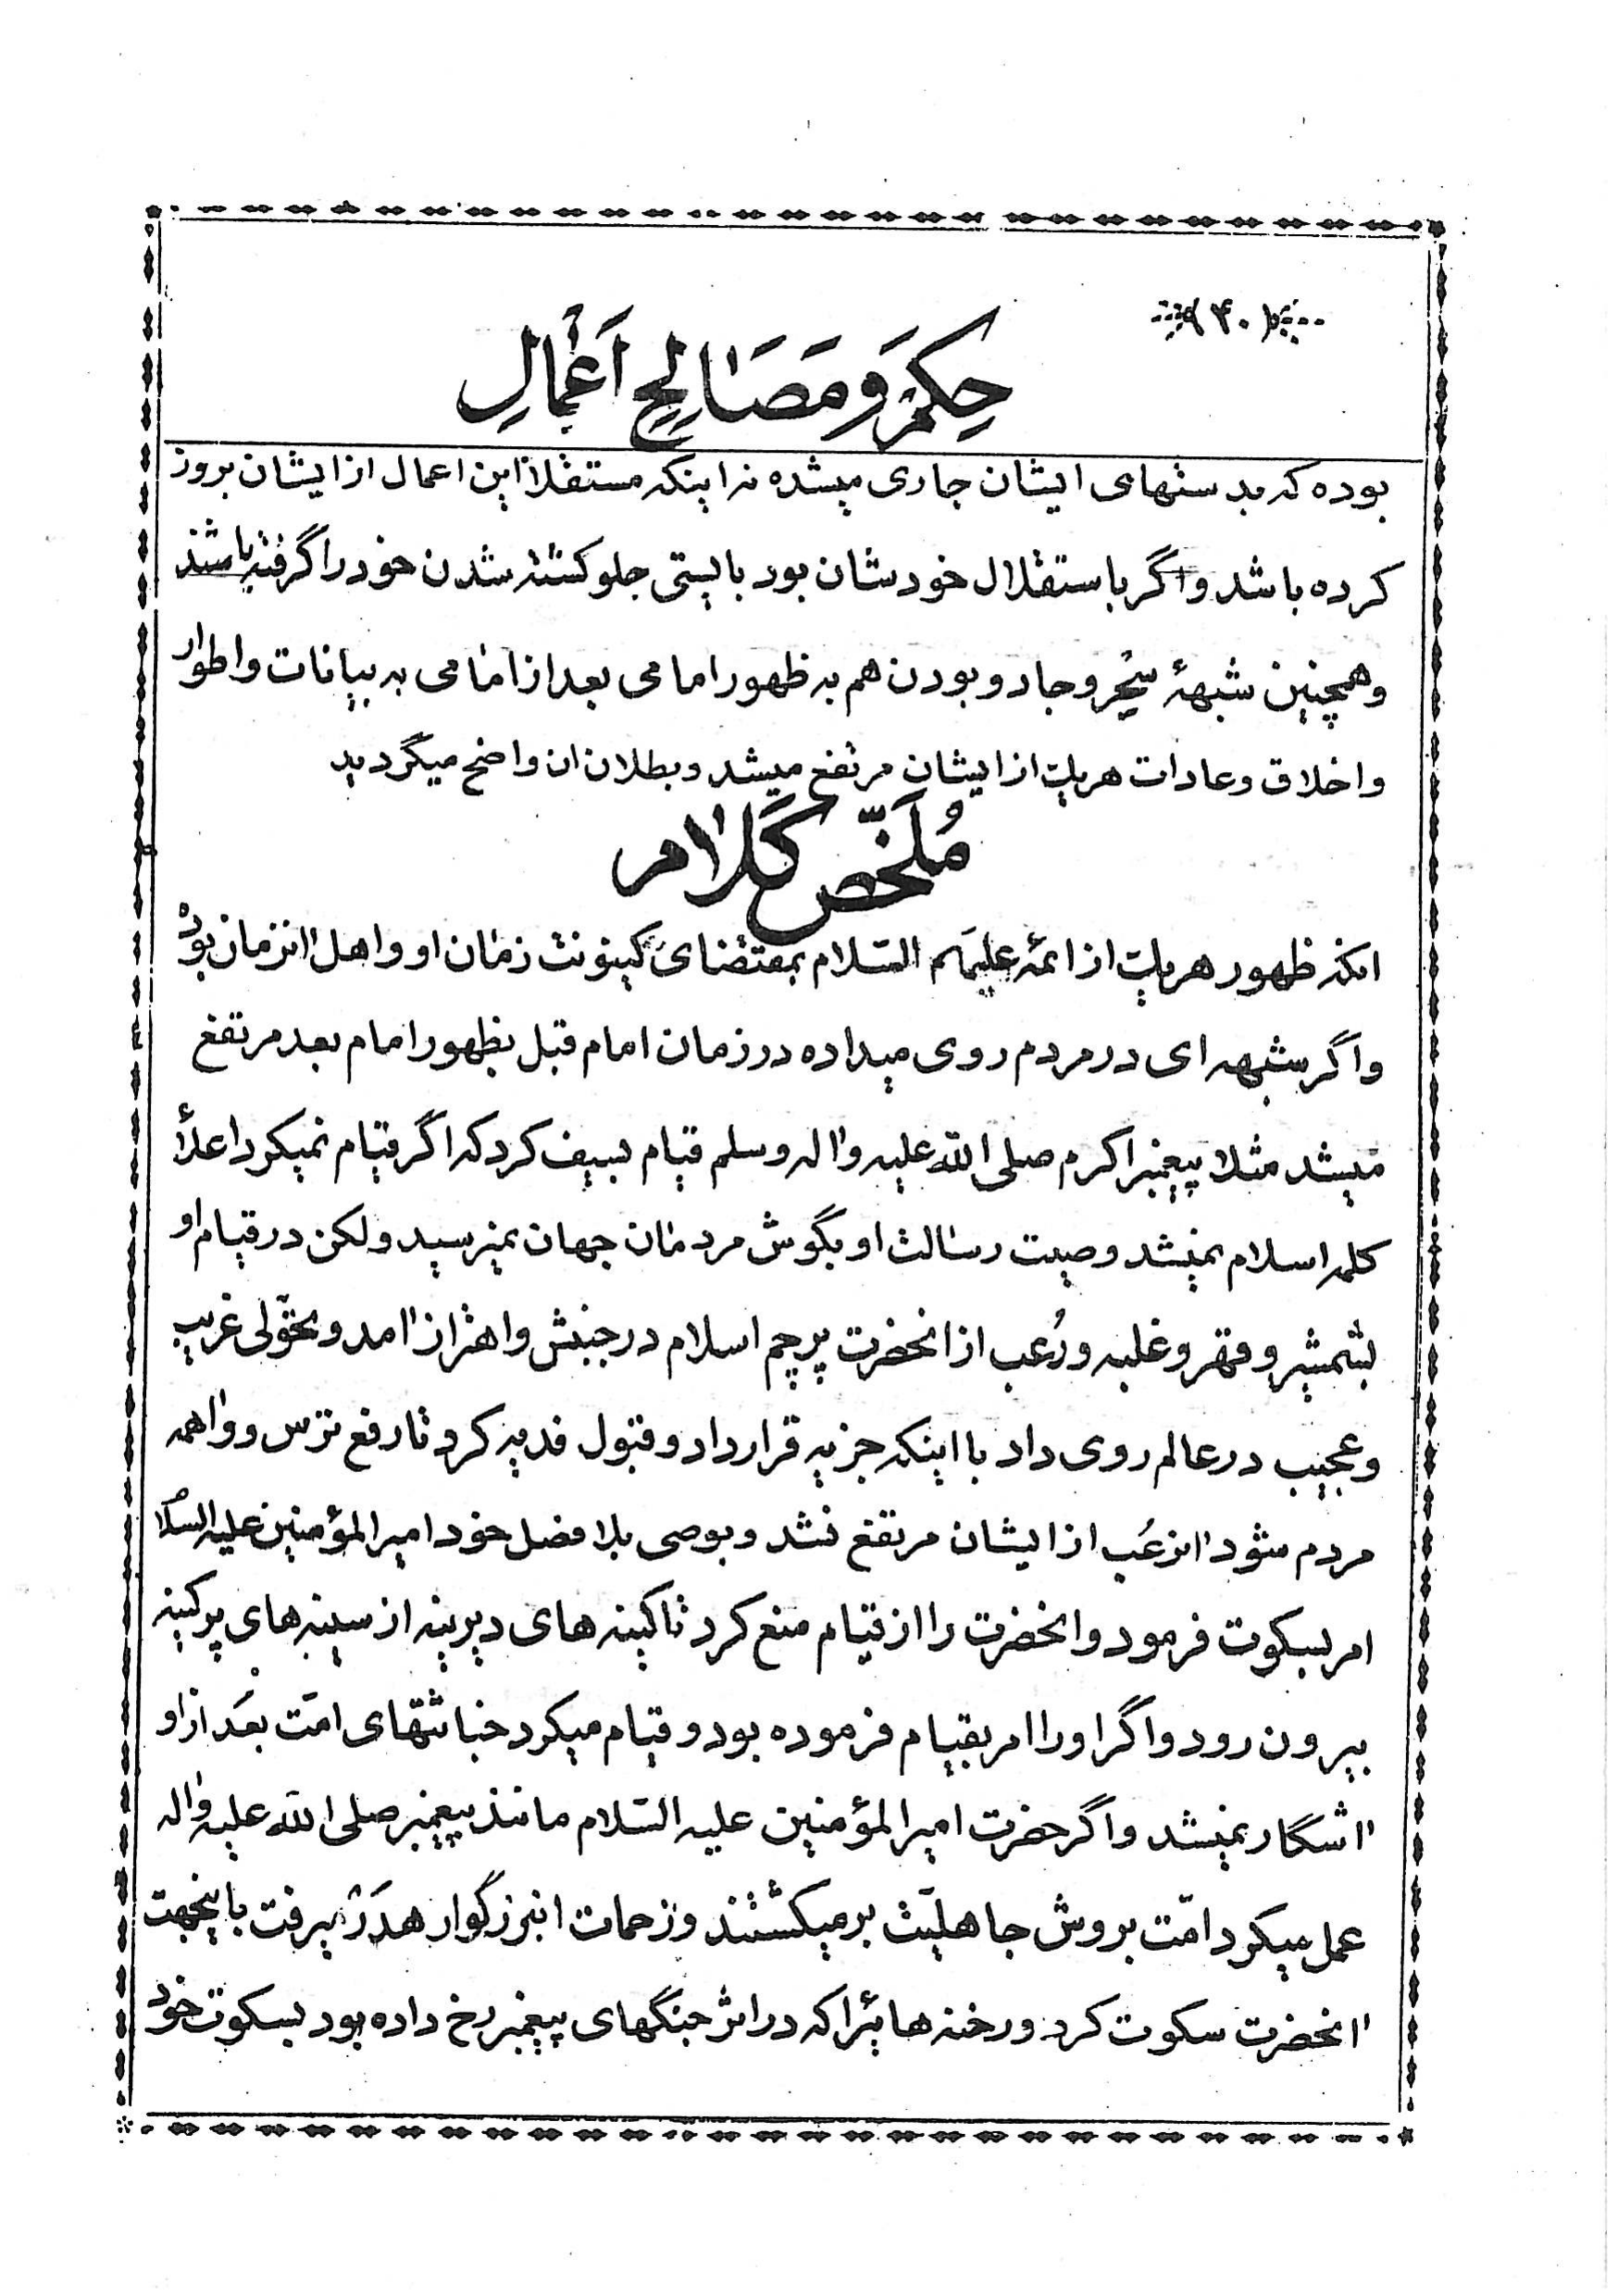 (۴۰)
حِکَمْ وَ مَصَالِحِ اَعْمٰالِ
بوده که بدستهای ایشان جاری میشده نه اینکه مستقلاً این اعمال از ایشان بروز
کرده باشد و اگر باستقلال خودشان بود بایستی جلو کشته شدن خود را گرفته باشند
و همچنین شبههٔ سِحْر و جادو بودن هم به ظهور امامی بعد از امامی به بیانات و اطوار
و اخلاق و عادات هریک از ایشان مرتفع میشد و بطلان ان واضح میگردید
مُلَخَّص کَلام
انکه ظهور هریک از ائمه علیهم السّلام بمقتضای کینونت زمان او و اهل آنزمان بوده
و اگر شبهه ای در مردم روی میداده در زمان امام قبل بظهور امام بعد مرتفع
میشد مثلا پیغمبر اکرم صلی الله علیه و اله و سلم قیام بسیف کرد که اگر قیام نمیکرد اعلاٰ
کلمه اسلام نمیشد و صیت رسالت او بگوش مردمان جهان نمیرسید ولکن در قیام او
بشمشیر و قهر و غلبه و رُعب از انحضرت پرچم اسلام در جنبش و اهتزاز آمد و تحوّلی غریب
و عجیب در عالم روی داد با اینکه جزیه قرار داد و قبول فدیه کرد تا رفع ترس و واهمه
مردم شود آنرعُب از ایشان مرتفع نشد و بوصی بلا فصل خود امیر المؤمنین علیه السلام
امر بسکوت فرمود و انحضرت را از قیام منع کرد تا کینه های دیرینه از سینه های پر کینه
بیرون رود و اگر او را امر بقیام فرموده بود و قیام میکرد خباثتهای امّت بعَد از او
آشکار نمیشد و اگر حضرت امیر المؤمنین علیه السّلام مانند پیغمبر صلی الله علیه و اله
عمل میکرد امّت بروش جاهلیّت برمیکشتند و زحمات انبزرگوار هدَر میرفت باینجهت
آنحضرت سکوت کرد و رخنه هائیرا که در اثر جنگهای پیغمبر رخ داده بود بسکوت خود